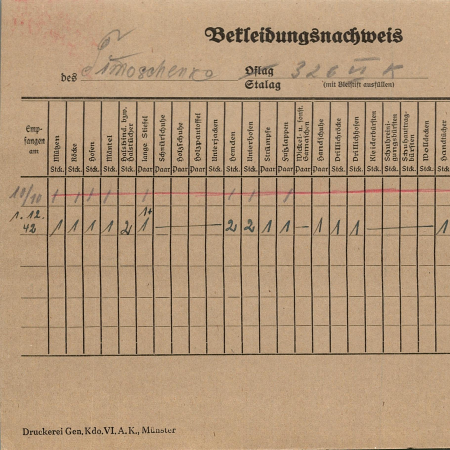 Bekleidungsnachweis
des Timoschenko Oflag 326 VI K
Stalag (mit Bleistift ausfüllen)
Empfangen am Mützen Röcke Hosen Mäntel Halsbind. bzw. Halstücher lange Stiefel Schnürschuhe Holzschuhe Holzpantoffel Unterjacken Hemden Unterhosen Strümpfe Fußlappen Wickel- u. sonst. Gamaschen Handschuhe Drillichröcke Drillichhosen Kleiderbürsten Schuhreinigungsbürsten Schuhauftragbürsten Wolldecken Handtücher
Stck. Stck. Stck. Stck. Stck. Paar Paar Paar Paar Stck. Stck. Stck. Paar Paar Paar Paar Stck. Stck. Stck. Stck. Stck. Stck. Stck.
10/10 1 1 1 1 1 1 1 1
1. 12. 42 1 1 1 1 2 1 1+ — — — — 2 2 1 1 — 1 1 1 — — — — 1
Druckerei Gen. Kdo. VI. A. K., Münster